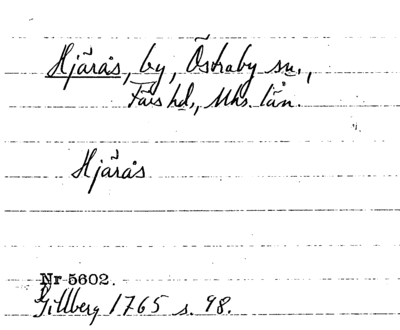 Hjärås, by, Öskaby sn.,
Färs hd., Mhs. län.
Hjärås
Nr 5602.
Gillberg 1765 s. 98.